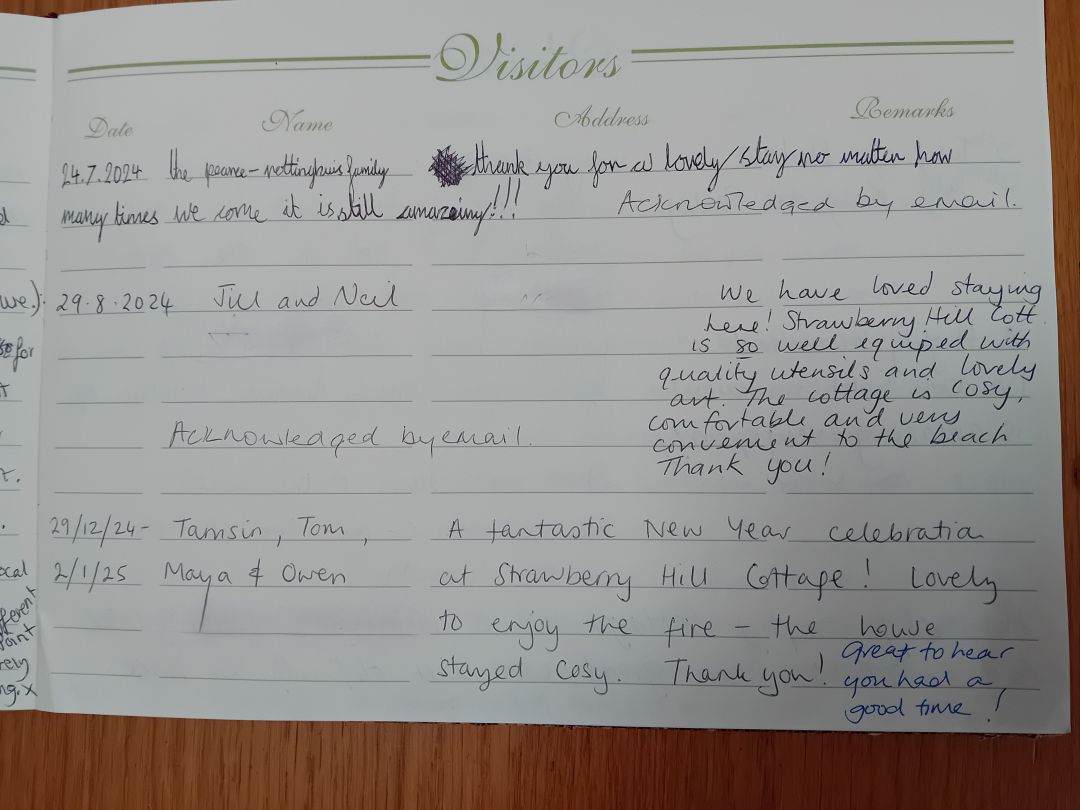 Visitors
Date Name Address Remarks
24.7.2024 the pearce-nottinghuis family thank you for a lovely stay no matter how
many times we come it is still amazing!!! Acknowledged by email.
29.8.2024 Jill and Neil We have loved staying
here! Strawberry Hill Cott
is so well equiped with
quality utensils and lovely
art. The cottage is cosy,
comfortable and very
Acknowledged by email.
convenient to the beach
Thank you!
29/12/24- Tamsin, Tom, A fantastic New Year celebration
2/1/25 Maya & Owen at Strawberry Hill Cottage! Lovely
to enjoy the fire - the house
stayed cosy. Thank you!
Great to hear
you had a
good time!
we.):
for
t.
ocal
fferent
aint
rely
ng.x